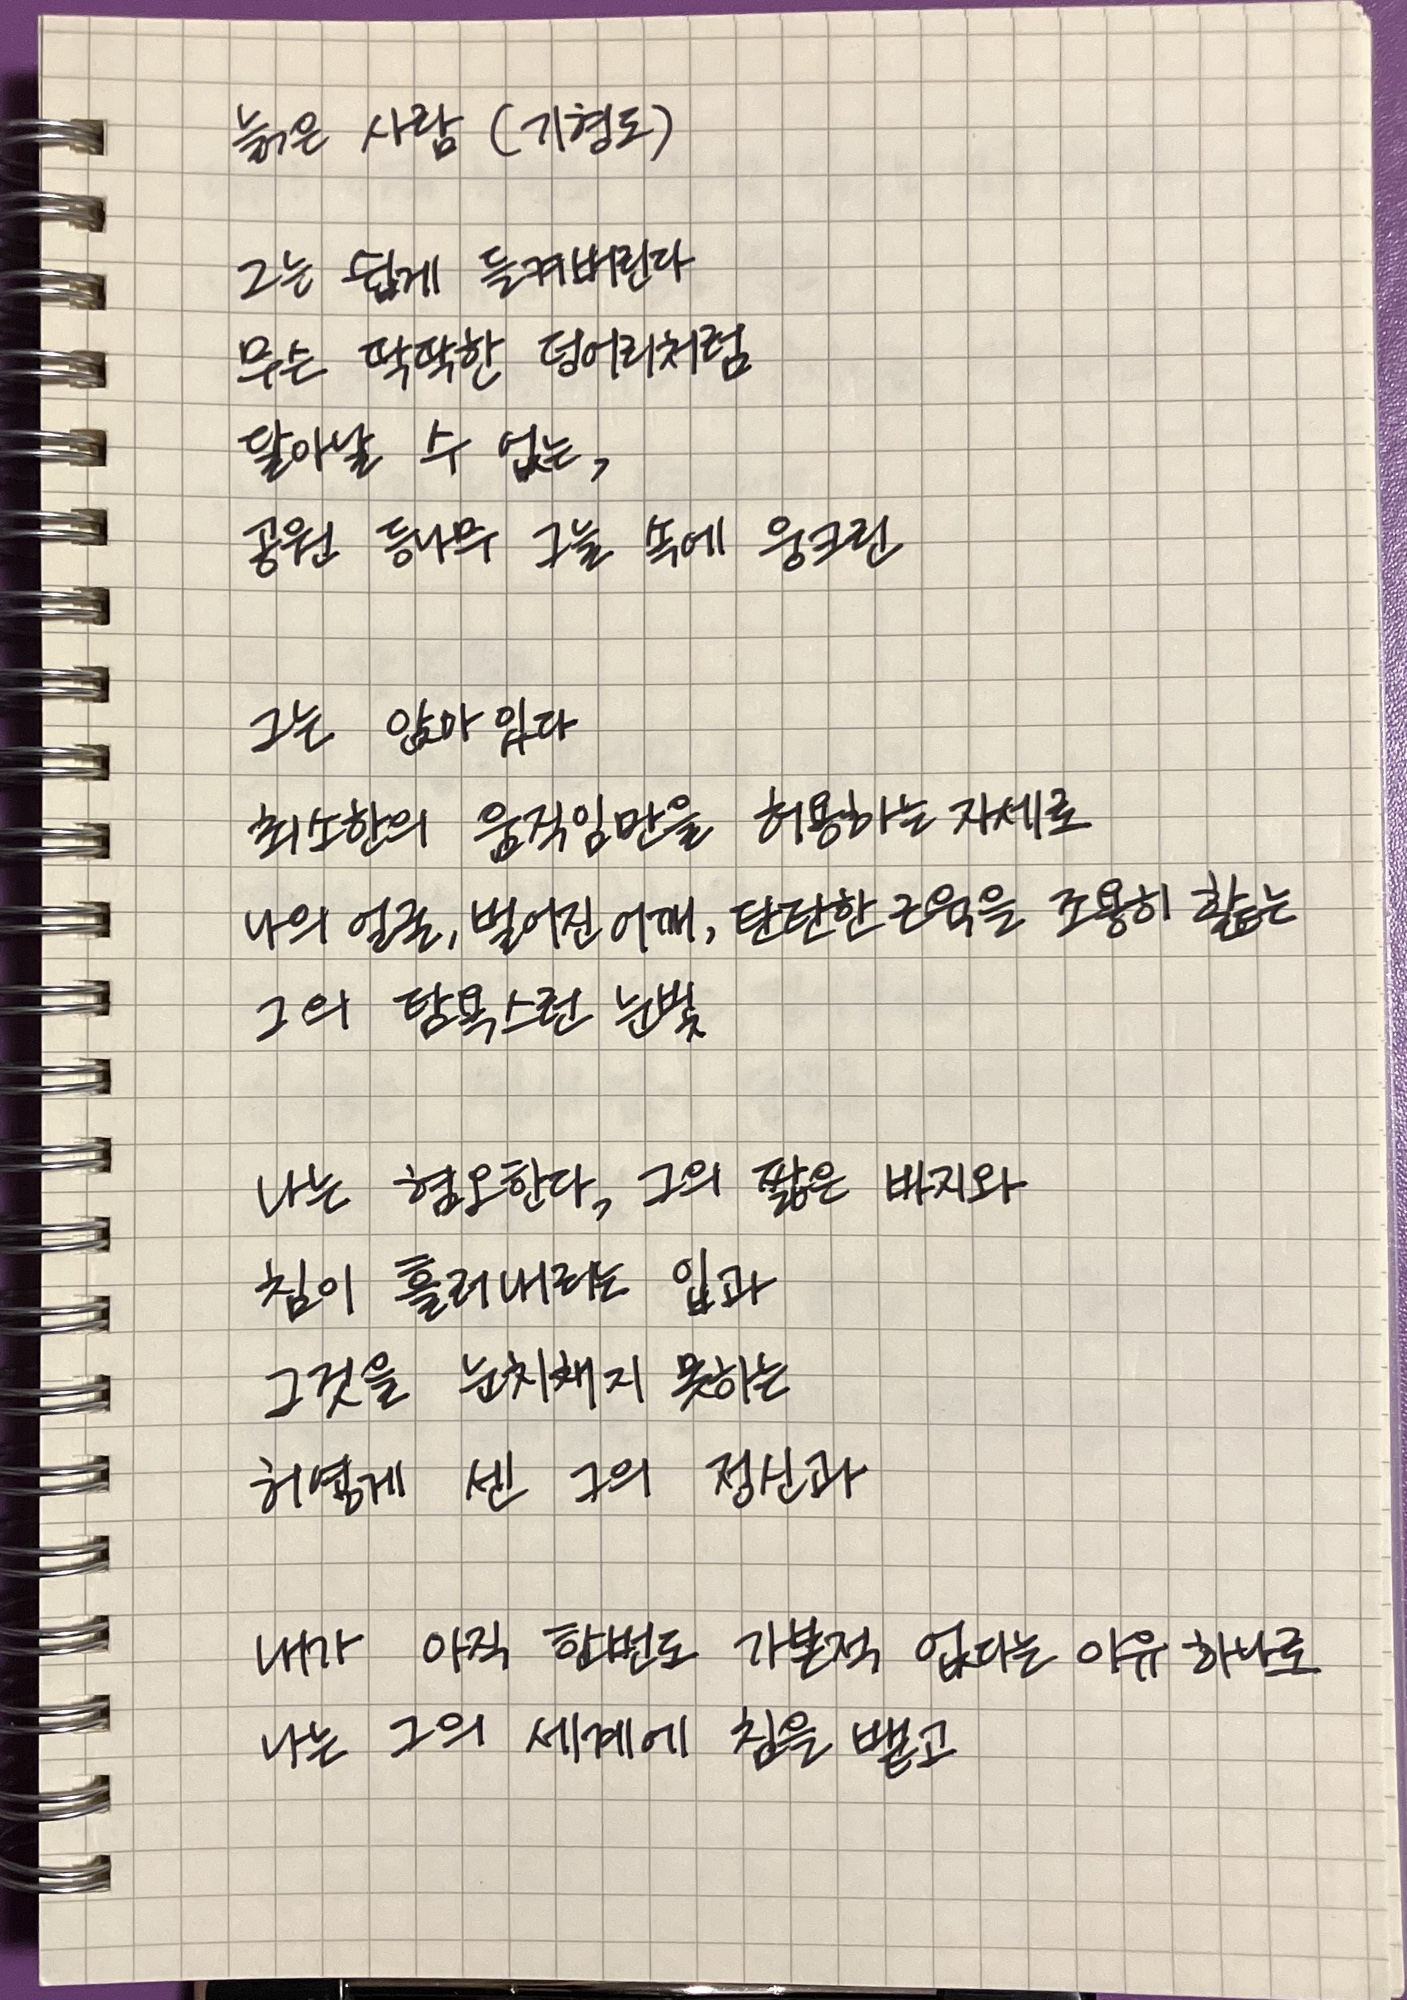 늙은 사람 (기형도)
그는 쉽게 들켜버린다
무슨 딱딱한 덩어리처럼
달아날 수 없는,
공원 등나무 그늘 속에 웅크린
그는 앉아 있다
최소한의 움직임만을 허용하는 자세로
나의 얼굴, 벌어진 어깨, 탄탄한 근육을 조용히 핥는
그의 탐욕스런 눈빛
나는 혐오한다, 그의 짧은 바지와
침이 흘러내리는 입과
그것을 눈치채지 못하는
허옇게 센 그의 정신과
내가 아직 한번도 가본적 없다는 이유 하나로
나는 그의 세계에 침을 뱉고